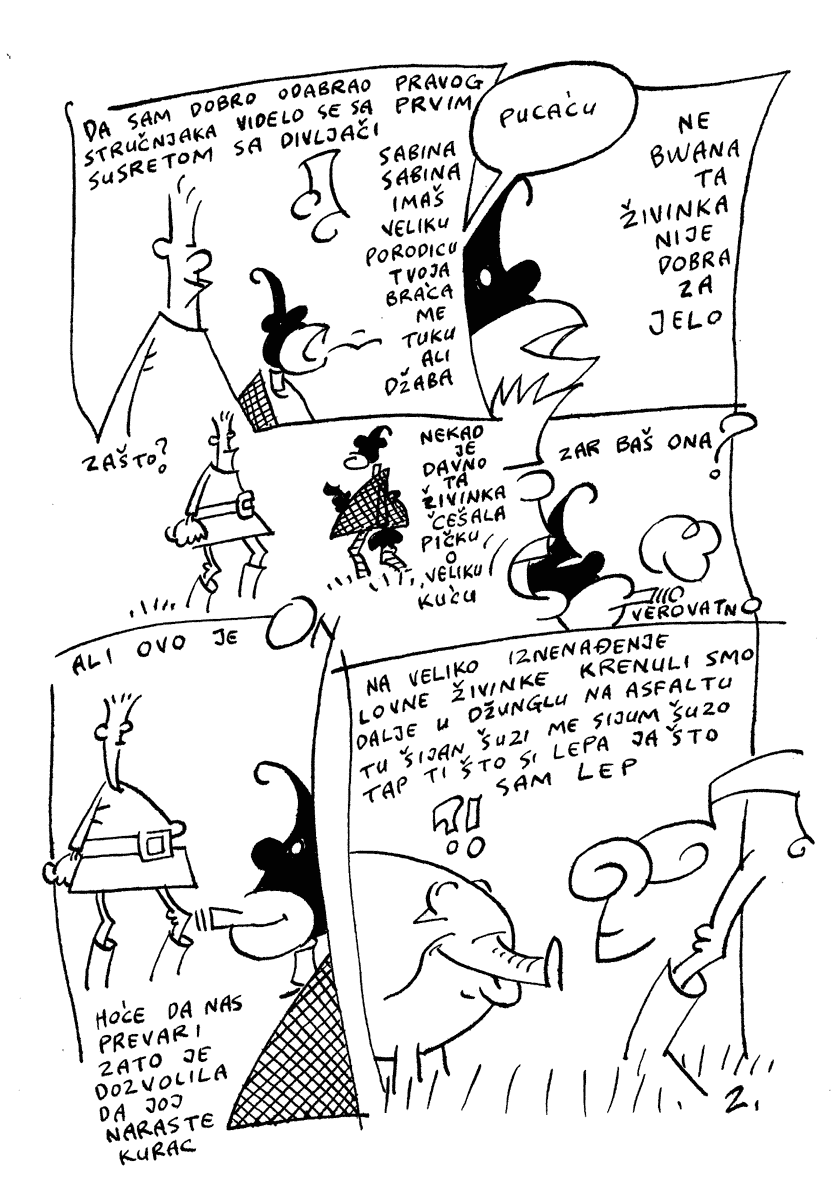 DA SAM DOBRO ODABRAO PRAVOG
STRUČNJAKA VIDELO SE SA PRVIM
SUSRETOM SA DIVLJAČI
SABINA
SABINA
IMAŠ
VELIKU
PORODICU
TVOJA
BRAĆA
ME
TUKU
ALI
DŽABA
PUCAĆU
NE
BWANA
TA
ŽIVINKA
NIJE
DOBRA
ZA
JELO
ZAŠTO?
NEKAD
JE
DAVNO
TA
ŽIVINKA
ČEŠALA
PIČKU
O
VELIKU
KUĆU
ZAR BAŠ ONA?
VEROVATNO
ALI OVO JE ON
HOĆE DA NAS
PREVARI
ZATO JE
DOZVOLILA
DA JOJ
NARASTE
KURAC
NA VELIKO IZNENAĐENJE
LOVNE ŽIVINKE KRENULI SMO
DALJE U DŽUNGLU NA ASFALTU
TU ŠIJAN ŠUZI ME SIJUM ŠUZO
TAP TI ŠTO SI LEPA JA ŠTO
SAM LEP
?!
2.